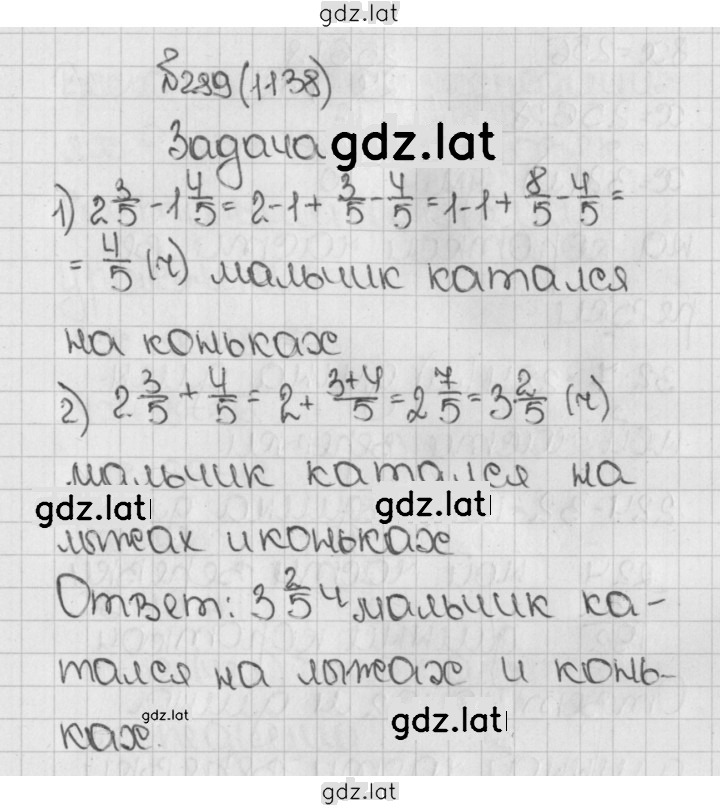 gdz.lat
№289(1138)
Задача gdz.lat
1) 2 3/5 - 1 4/5 = 2-1+ 3/5 - 4/5 = 1-1+ 8/5 - 4/5 =
= 4/5 (ч) мальчик катался
на коньках
2) 2 3/5 + 4/5 = 2+ 3+4/5 = 2 7/5 = 3 2/5 (ч)
мальчик катался на
gdz.lat gdz.lat
лыжах и коньках
Ответ: 3 2/5 ч мальчик ка-
тался на лыжах и конь-
ках. gdz.lat gdz.lat
gdz.lat